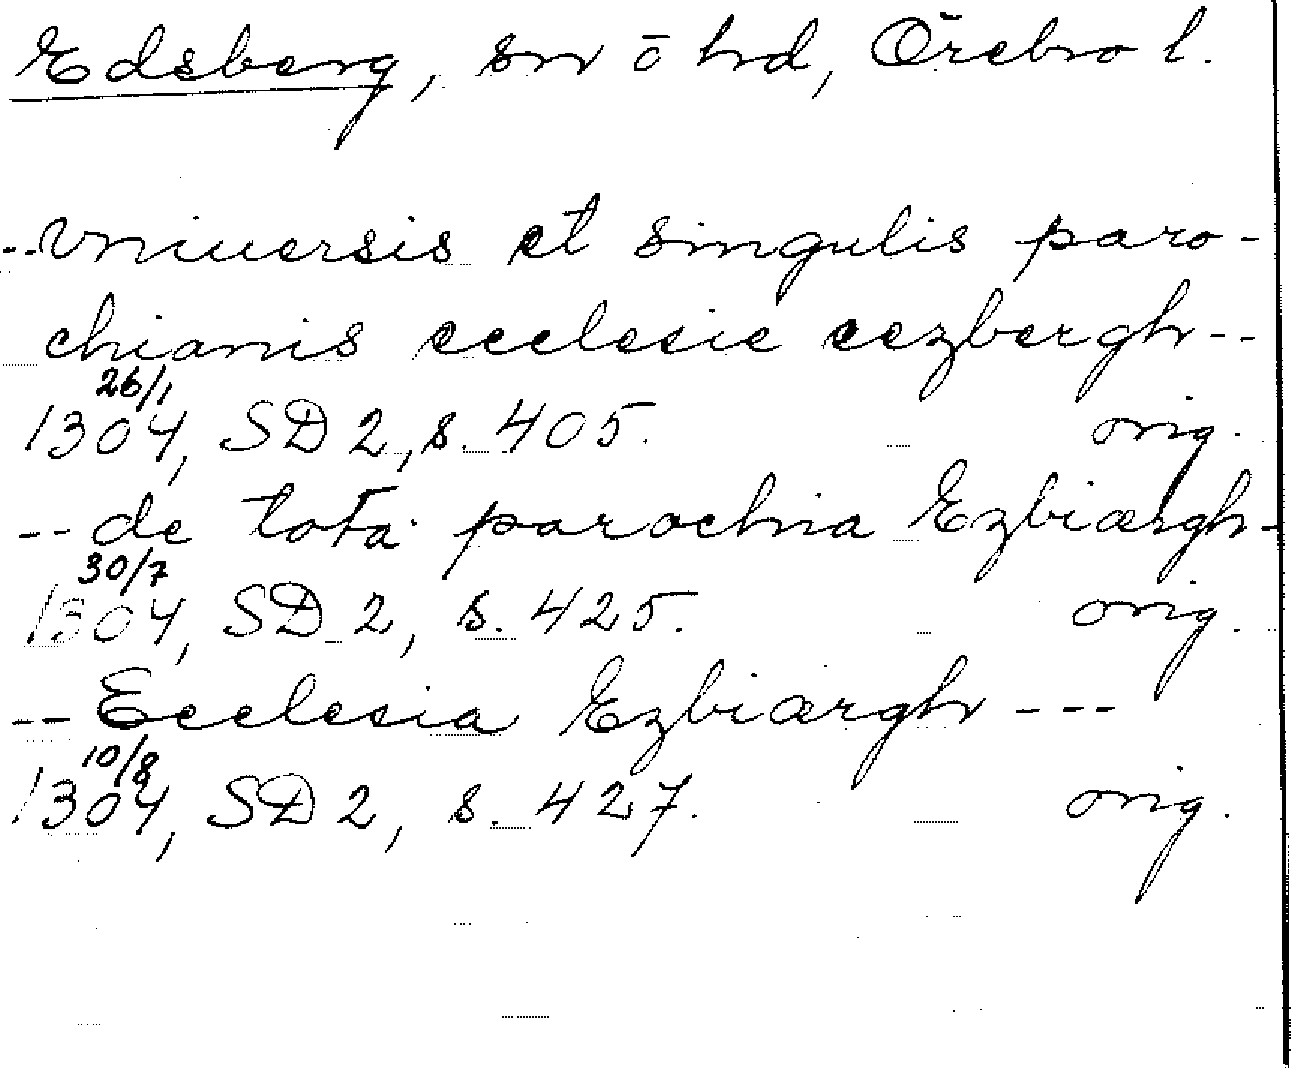 Edsberg, sn ō hd, Örebro l.
--vniuersis et singulis paro-
chianis ecclesie eezbergh--
26/1
1304, SD 2, s. 405. orig.
-- de tota parochia Ezbiærgh-
30/7
1304, SD 2, s. 425. orig.
-- Ecclesia Ezbiærgh ---
10/8
1304, SD 2, s. 427. orig.